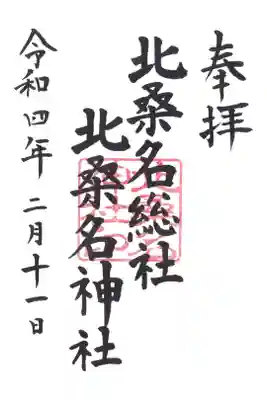 奉拝
北桑名総社
北桑名神社
令和四年 二月十一日